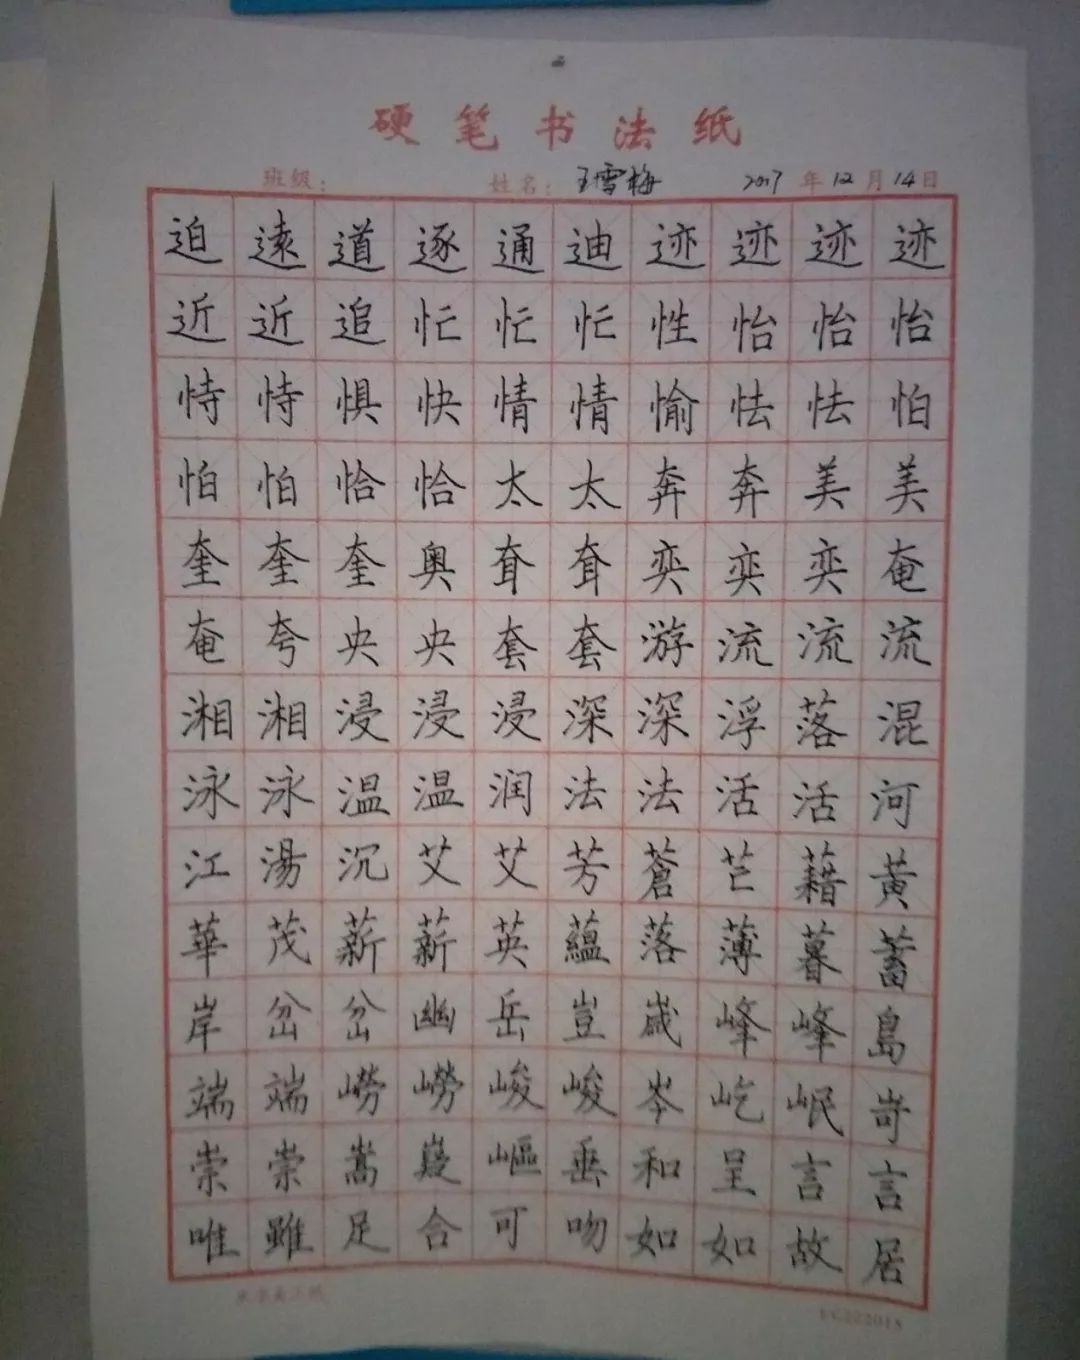 硬笔书法纸
班级： 姓名：王雪梅 2017年12月14日
迫遠道逐通迪迹迹迹迹
近近追忙忙忙性怡怡怡
恃恃惧快情情愉怯怯怕
怕怕恰恰太太奔奔美美
奎奎奎奥耷耷奕奕奕奄
奄夸央央套套游流流流
湘湘浸浸浸深深浮落混
泳泳温温润法法活活河
江湯沉艾艾芳蒼芒藉黃
華茂薪薪英蘊落薄暮蓄
岸岔岔幽岳豈嵗峰峰島
端端嶗嶗峻峻岑屹岷岢
崇崇嵩嶷嶇垂和呈言言
唯雖足合可吻如如故居